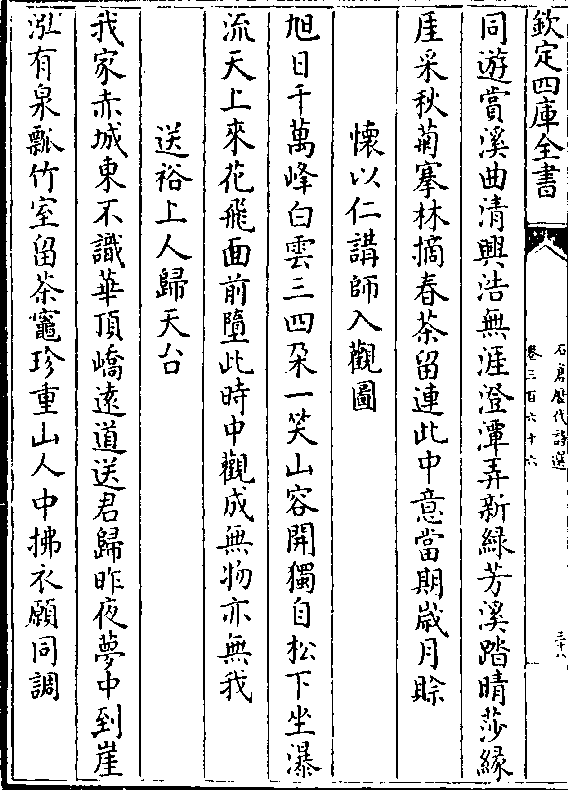 欽定四庫全書
石倉歴代詩選
卷三百六十六
三十八
同遊賞溪曲清興浩無涯澄潭弄新緑芳溪踏晴莎縁
厓采秋菊搴林摘春茶留連此中意當期歳月賖
懷以仁講師入觀圖
旭日千萬峰白雲三四朶一笑山容開獨自松下坐瀑
流天上來花飛面前墮此時中觀成無物亦無我
送裕上人歸天台
我家赤城東不識華頂嶠逺道送君歸昨夜夢中到崖
泓有泉瓢竹室留茶竈珍重山人中拂衣願同調